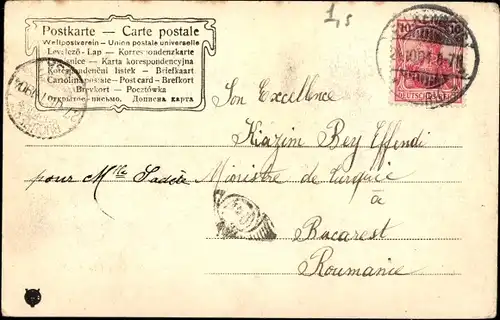 1,s
Postkarte — Carte postale
Weltpostverein – Union postale universelle
Levelező-Lap – Korrespondenzkarte
Karta korespondencyjna
Korespondenční lístek – Briefkaart
Cartolina postale – Post card – Brefkort
Brevkort – Pocztówka
Открытое письмо. Дописна карта
Son Excellence
Kiazim Bey Effendi
pour Mlle Sadée Ministre de Turquie
à
Bucarest
Roumanie.